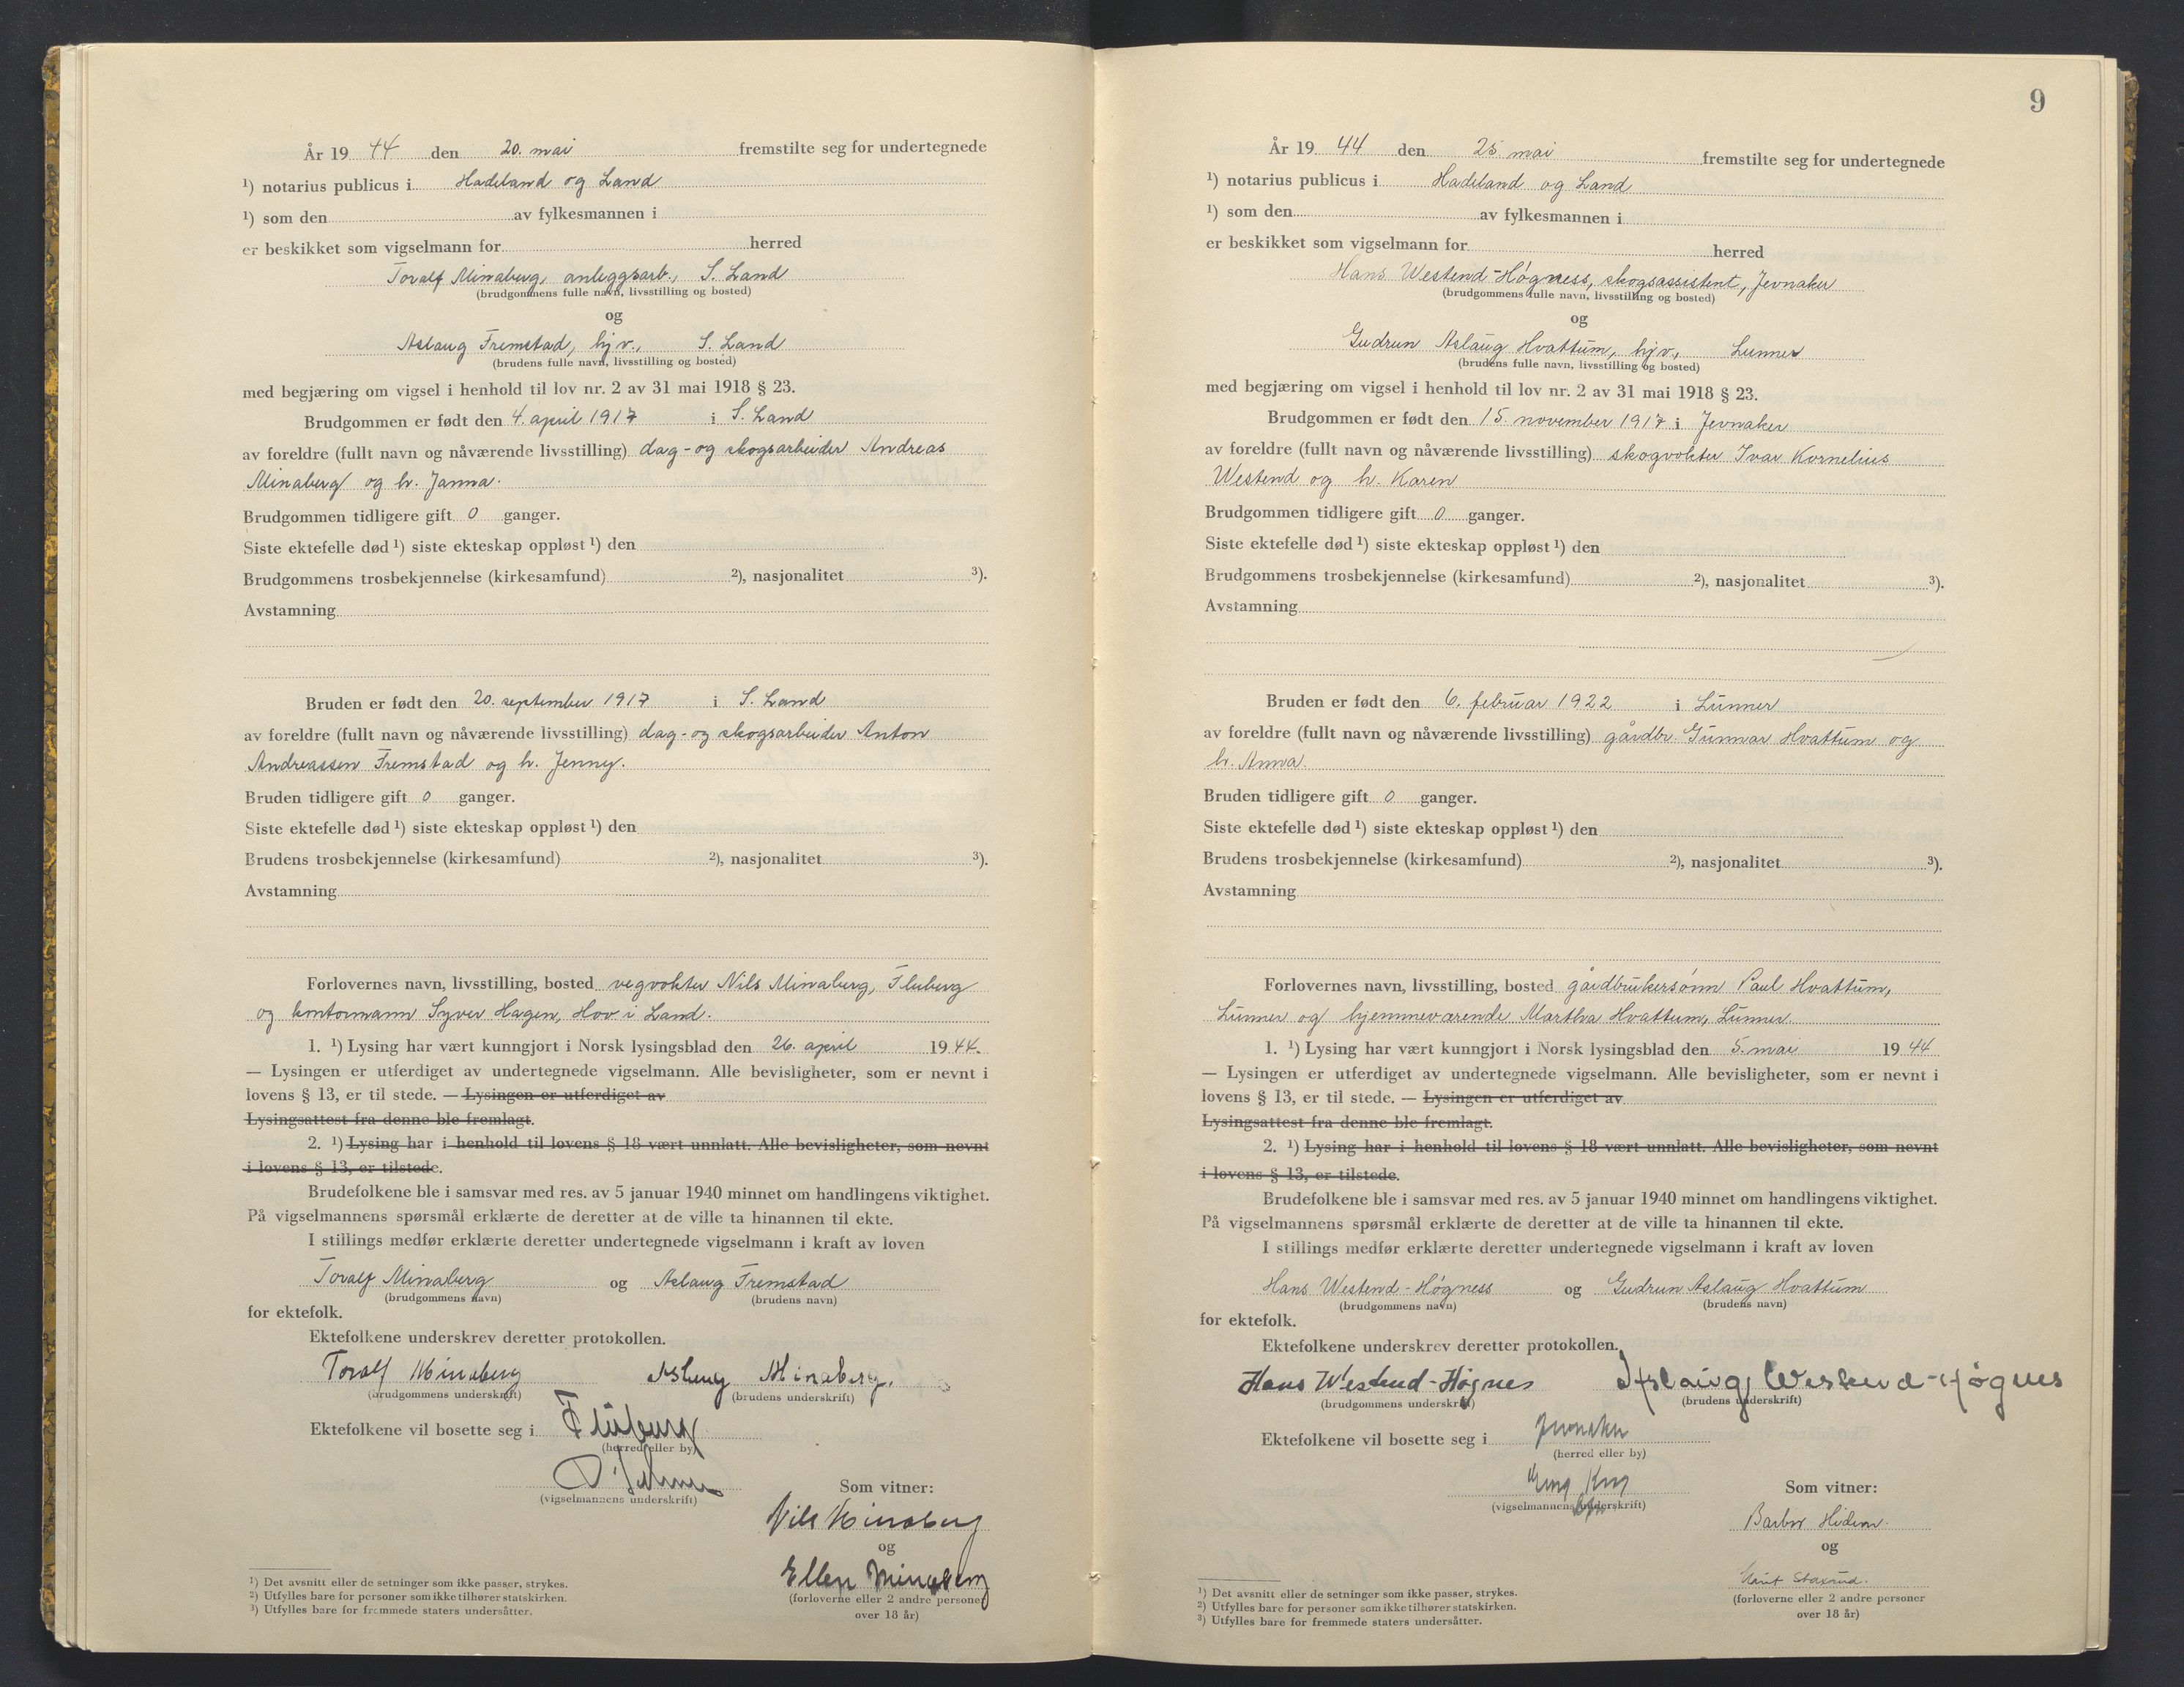 År 19 44 den 20. mai fremstilte seg for undertegnede
¹) notarius publicus i Hadeland og Land
¹) som den av fylkesmannen i
er beskikket som vigselmann for herred
Toralf Minaberg, anleggsarb., S. Land
(brudgommens fulle navn, livsstilling og bosted)
og
Aslaug Fremstad, hjv., S. Land
(brudens fulle navn, livsstilling og bosted)
med begjæring om vigsel i henhold til lov nr. 2 av 31 mai 1918 § 23.
Brudgommen er født den 4. april 1917 i S. Land
av foreldre (fullt navn og nåværende livsstilling) dag- og skogsarbeider Andreas
Minaberg og h. Janna.
Brudgommen tidligere gift 0 ganger.
Siste ektefelle død ¹) siste ekteskap oppløst ¹) den
Brudgommens trosbekjennelse (kirkesamfund) ²), nasjonalitet ³).
Avstamning
Bruden er født den 20. september 1917 i S. Land
av foreldre (fullt navn og nåværende livsstilling) dag- og skogsarbeider Anton
Andreassen Fremstad og h. Jenny.
Bruden tidligere gift 0 ganger.
Siste ektefelle død ¹) siste ekteskap oppløst ¹) den
Brudens trosbekjennelse (kirkesamfund) ²), nasjonalitet ³).
Avstamning
Forlovernes navn, livsstilling, bosted vegvokter Nils Minaberg, Fluberg
og kontormann Syver Hagen, Hov i Land.
1. ¹) Lysing har vært kunngjort i Norsk lysingsblad den 26. april 1944.
— Lysingen er utferdiget av undertegnede vigselmann. Alle bevisligheter, som er nevnt i
lovens § 13, er til stede. — Lysingen er utferdiget av
Lysingsattest fra denne ble fremlagt.
2. ¹) Lysing har i henhold til lovens § 18 vært unnlatt. Alle bevisligheter, som nevnt
i lovens § 13, er tilstede.
Brudefolkene ble i samsvar med res. av 5 januar 1940 minnet om handlingens viktighet.
På vigselmannens spørsmål erklærte de deretter at de ville ta hinannen til ekte.
I stillings medfør erklærte deretter undertegnede vigselmann i kraft av loven
Toralf Minaberg og Aslaug Fremstad
(brudgommens navn) (brudens navn)
for ektefolk.
Ektefolkene underskrev deretter protokollen.
Toralf Minaberg Aslaug Minaberg.
(brudgommens underskrift) (brudens underskrift)
Ektefolkene vil bosette seg i Fluberg
(herred eller by)
(vigselmannens underskrift)
Som vitner:
Nils Minaberg
og
Ellen Minaberg
(forloverne eller 2 andre personer
over 18 år)
¹) Det avsnitt eller de setninger som ikke passer, strykes.
²) Utfylles bare for personer som ikke tilhører statskirken.
³) Utfylles bare for fremmede staters undersåtter.
9
År 19 44 den 25 mai fremstilte seg for undertegnede
¹) notarius publicus i Hadeland og Land
¹) som den av fylkesmannen i
er beskikket som vigselmann for herred
Hans Westend-Høgness, skogsassistent, Jevnaker
(brudgommens fulle navn, livsstilling og bosted)
og
Gudrun Aslaug Hvattum, hjv., Lunner
(brudens fulle navn, livsstilling og bosted)
med begjæring om vigsel i henhold til lov nr. 2 av 31 mai 1918 § 23.
Brudgommen er født den 15. november 1917 i Jevnaker
av foreldre (fullt navn og nåværende livsstilling) skogvokter Ivar Kornelius
Westend og h. Karen
Brudgommen tidligere gift 0 ganger.
Siste ektefelle død ¹) siste ekteskap oppløst ¹) den
Brudgommens trosbekjennelse (kirkesamfund) ²), nasjonalitet ³).
Avstamning
Bruden er født den 6. februar 1922 i Lunner
av foreldre (fullt navn og nåværende livsstilling) gårdbr. Gunnar Hvattum og
h. Anna.
Bruden tidligere gift 0 ganger.
Siste ektefelle død ¹) siste ekteskap oppløst ¹) den
Brudens trosbekjennelse (kirkesamfund) ²), nasjonalitet ³).
Avstamning
Forlovernes navn, livsstilling, bosted gårdbrukersønn Paul Hvattum,
Lunner og hjemmeværende Martha Hvattum, Lunner.
1. ¹) Lysing har vært kunngjort i Norsk lysingsblad den 5. mai 1944
— Lysingen er utferdiget av undertegnede vigselmann. Alle bevisligheter, som er nevnt i
lovens § 13, er til stede. — Lysingen er utferdiget av
Lysingsattest fra denne ble fremlagt.
2. ¹) Lysing har i henhold til lovens § 18 vært unnlatt. Alle bevisligheter, som nevnt
i lovens § 13, er tilstede.
Brudefolkene ble i samsvar med res. av 5 januar 1940 minnet om handlingens viktighet.
På vigselmannens spørsmål erklærte de deretter at de ville ta hinannen til ekte.
I stillings medfør erklærte deretter undertegnede vigselmann i kraft av loven
Hans Westend-Høgness og Gudrun Aslaug Hvattum
(brudgommens navn) (brudens navn)
for ektefolk.
Ektefolkene underskrev deretter protokollen.
Hans Westend-Høgnes Aslaug Westend-Høgnes
(brudgommens underskrift) (brudens underskrift)
Ektefolkene vil bosette seg i Jevnaker
(herred eller by)
(vigselmannens underskrift)
Som vitner:
Barbro
og
Marit Staxrud.
(forloverne eller 2 andre personer
over 18 år)
¹) Det avsnitt eller de setninger som ikke passer, strykes.
²) Utfylles bare for personer som ikke tilhører statskirken.
³) Utfylles bare for fremmede staters undersåtter.